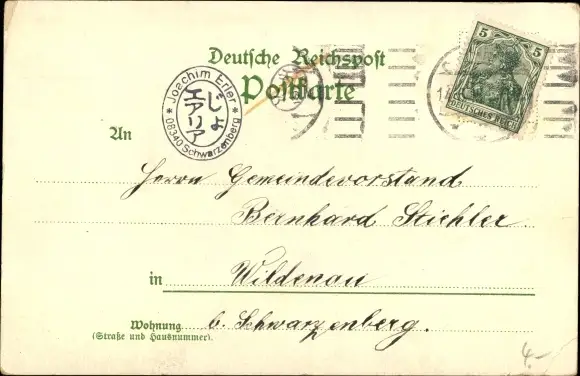 Deutsche Reichspost
Postkarte
5 5
DEUTSCHES REICH
* Joachim Erler *
じょ
エアリア
08340 Schwarzenberg
An
Herrn Gemeindevorstand
Bernhard Stiehler.
in Wildenau
Wohnung b. Schwarzenberg.
(Straße und Hausnummer).
4.-